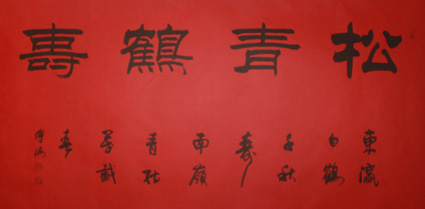 松青鶴壽
東瀛
白鶴
千秋
壽
南嶺
青松
萬載
春